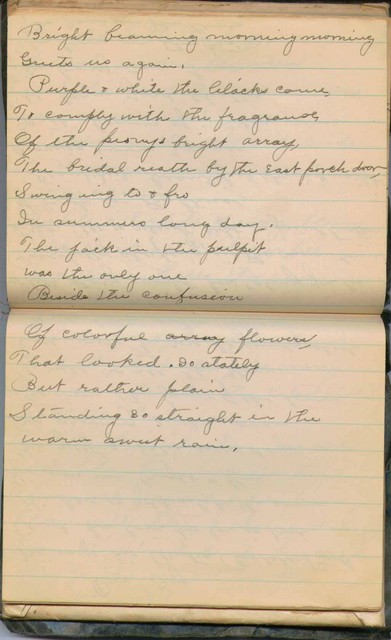 Bright beaming morning morning
Greets us again.
Purple & white the lilacks come,
To comply with the fragrance,
Of the peonys bright array,
The bridal reath by the East porch door,
Swinging to & fro
In summers long day.
The jack in the pulpit
was the only one
Beside the confusion
Of colorful array flowers,
That looked so stately
But rather plain
Standing so straight in the
warm sweet rain.